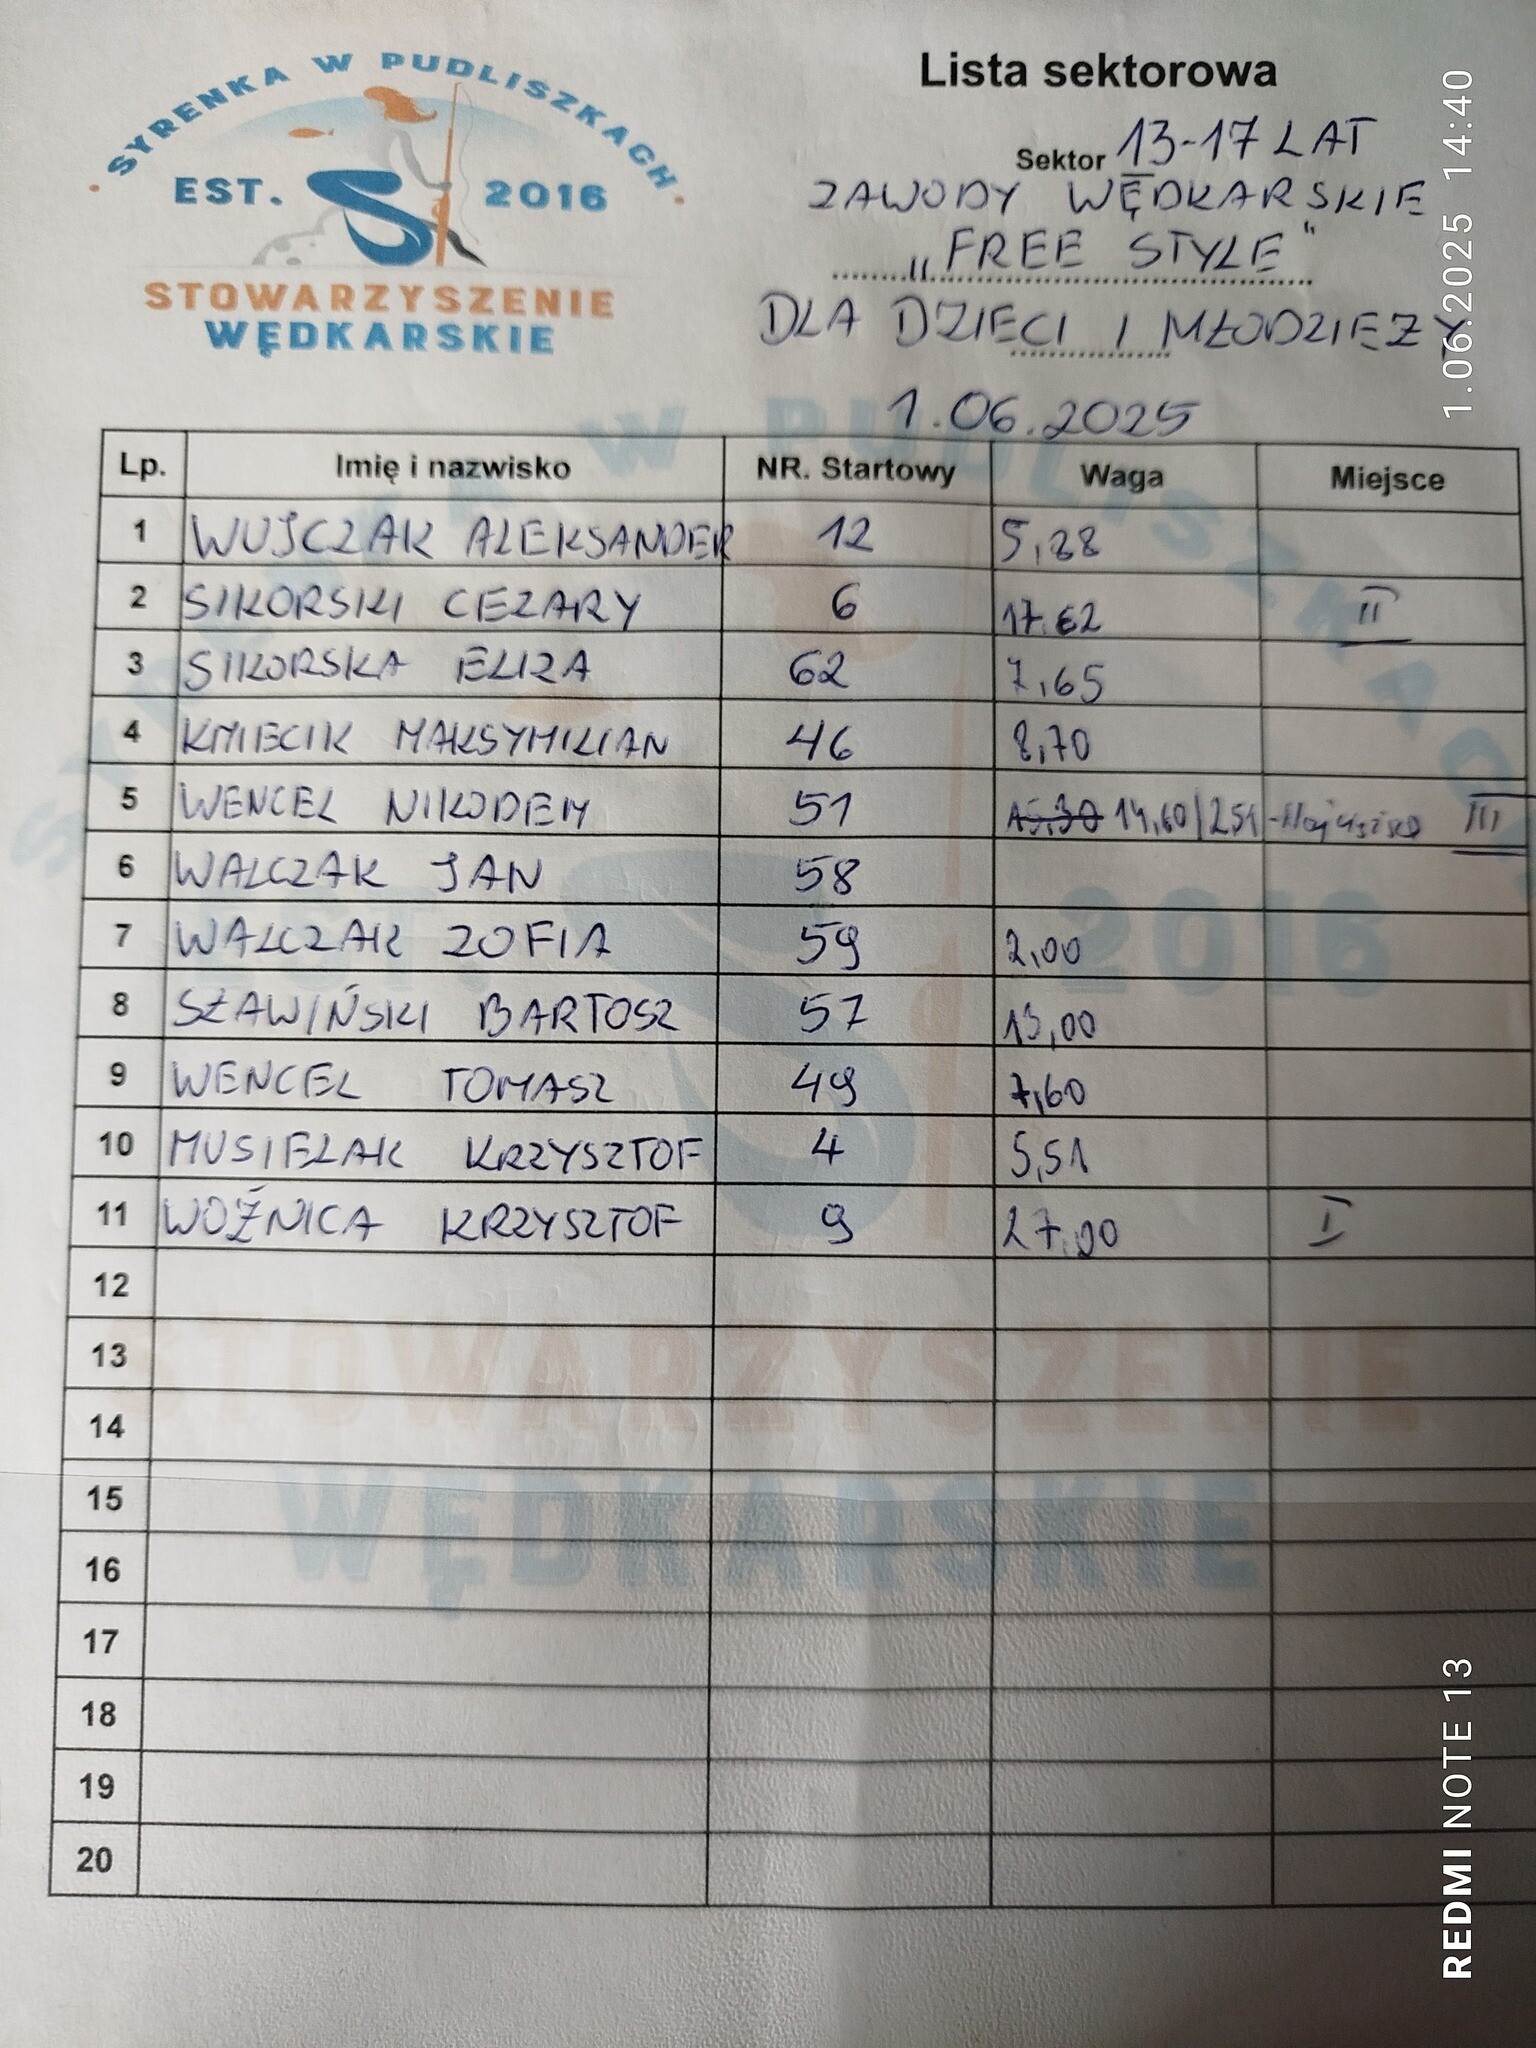 SYRENKA W PUDLISZKACH
EST. 2016
STOWARZYSZENIE
WĘDKARSKIE
Lista sektorowa
Sektor 13-17 LAT
ZAWODY WĘDKARSKIE
„FREE STYLE"
DLA DZIECI I MŁODZIEZY
1.06.2025
Lp. Imię i nazwisko NR. Startowy Waga Miejsce
1 WUJCZAK ALEKSANDER 12 5,28
2 SIKORSKI CEZARY 6 17.62 II
3 SIKORSKA ELIZA 62 7,65
4 KMIECIK MAKSYMILIAN 46 8,70
5 WENCEL NIKODEM 51 15,30 14,60/2,51 III
6 WALCZAK JAN 58
7 WALCZAK ZOFIA 59 2,00
8 SŁAWIŃSKI BARTOSZ 57 13,00
9 WENCEL TOMASZ 49 7,60
10 MUSIELAK KRZYSZTOF 4 5,51
11 WOŹNICA KRZYSZTOF 9 27,00 I
12
13
14
15
16
17
18
19
20
SYRENKA W PUDLISZKACH
2016
STOWARZYSZENIE
WĘDKARSKIE
1.06.2025 14:40
REDMI NOTE 13